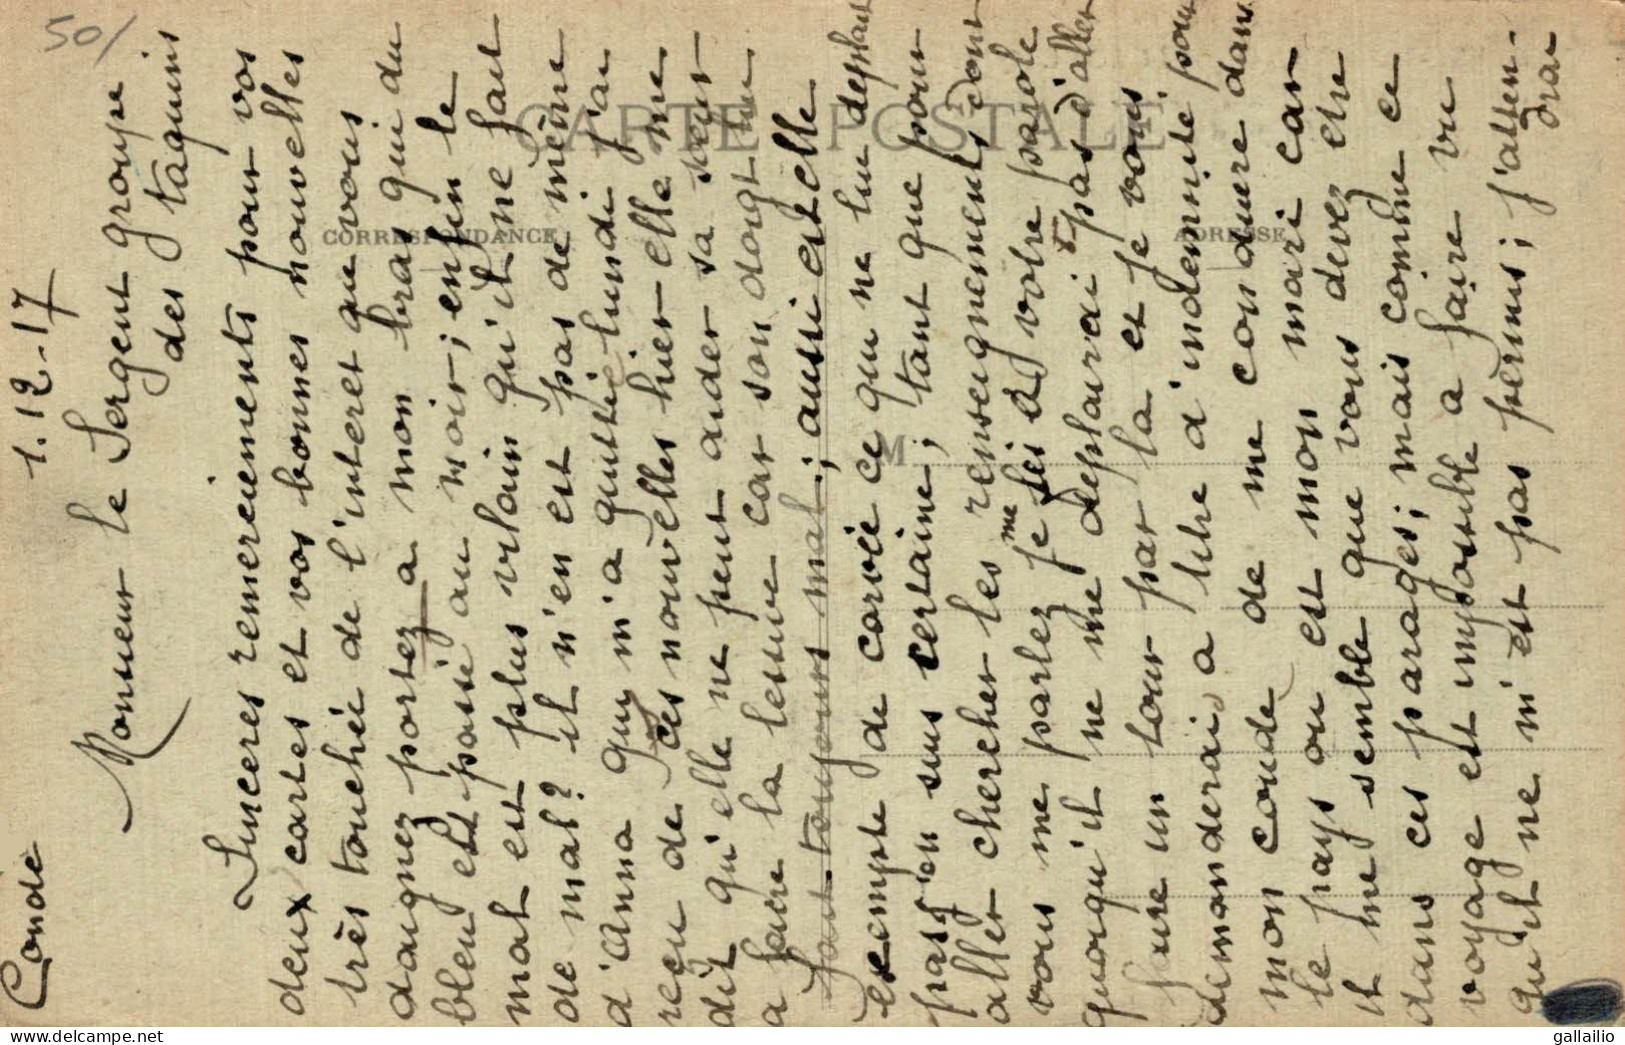 50/
Condé 1.12.17
Monsieur le Sergent groupe
des taquins
Sinceres remerciements pour vos
deux cartes et vos bonnes nouvelles
très touchée de l'interet que vous
daignez portez a mon bras qui du
bleu est passé au noir; enfin le
mal est plus vilain qu'il ne fait
de mal? il n'en est pas de même
d'Anna qui m'a quittée lundi j'ai
reçu de ces nouvelles hier elle me
dit qu'elle ne peut aider sa sœur
a faire la lessive car son doigt lui
fait toujours mal; aussi est elle
exempte de corvée ce qui ne lui deplait
pas j'en suis certaine; tant que pour
aller chercher les renseignements dont
vous me parlez je me fis a votre parole
quoiqu'il ne me deplairai pas d'aller
faire un tour par la et je vous
demanderai a titre d'indemnité pour
mon coude de me conduire dans
le pays ou est mon mari car
il me semble que vous devez etre
dans ces parages; mais comme ce
voyage est impossible a faire vu
qu'il ne m'est pas permis; j'atten-
drai
CARTE POSTALE
CORRESPONDANCE
ADRESSE
M
gallailio